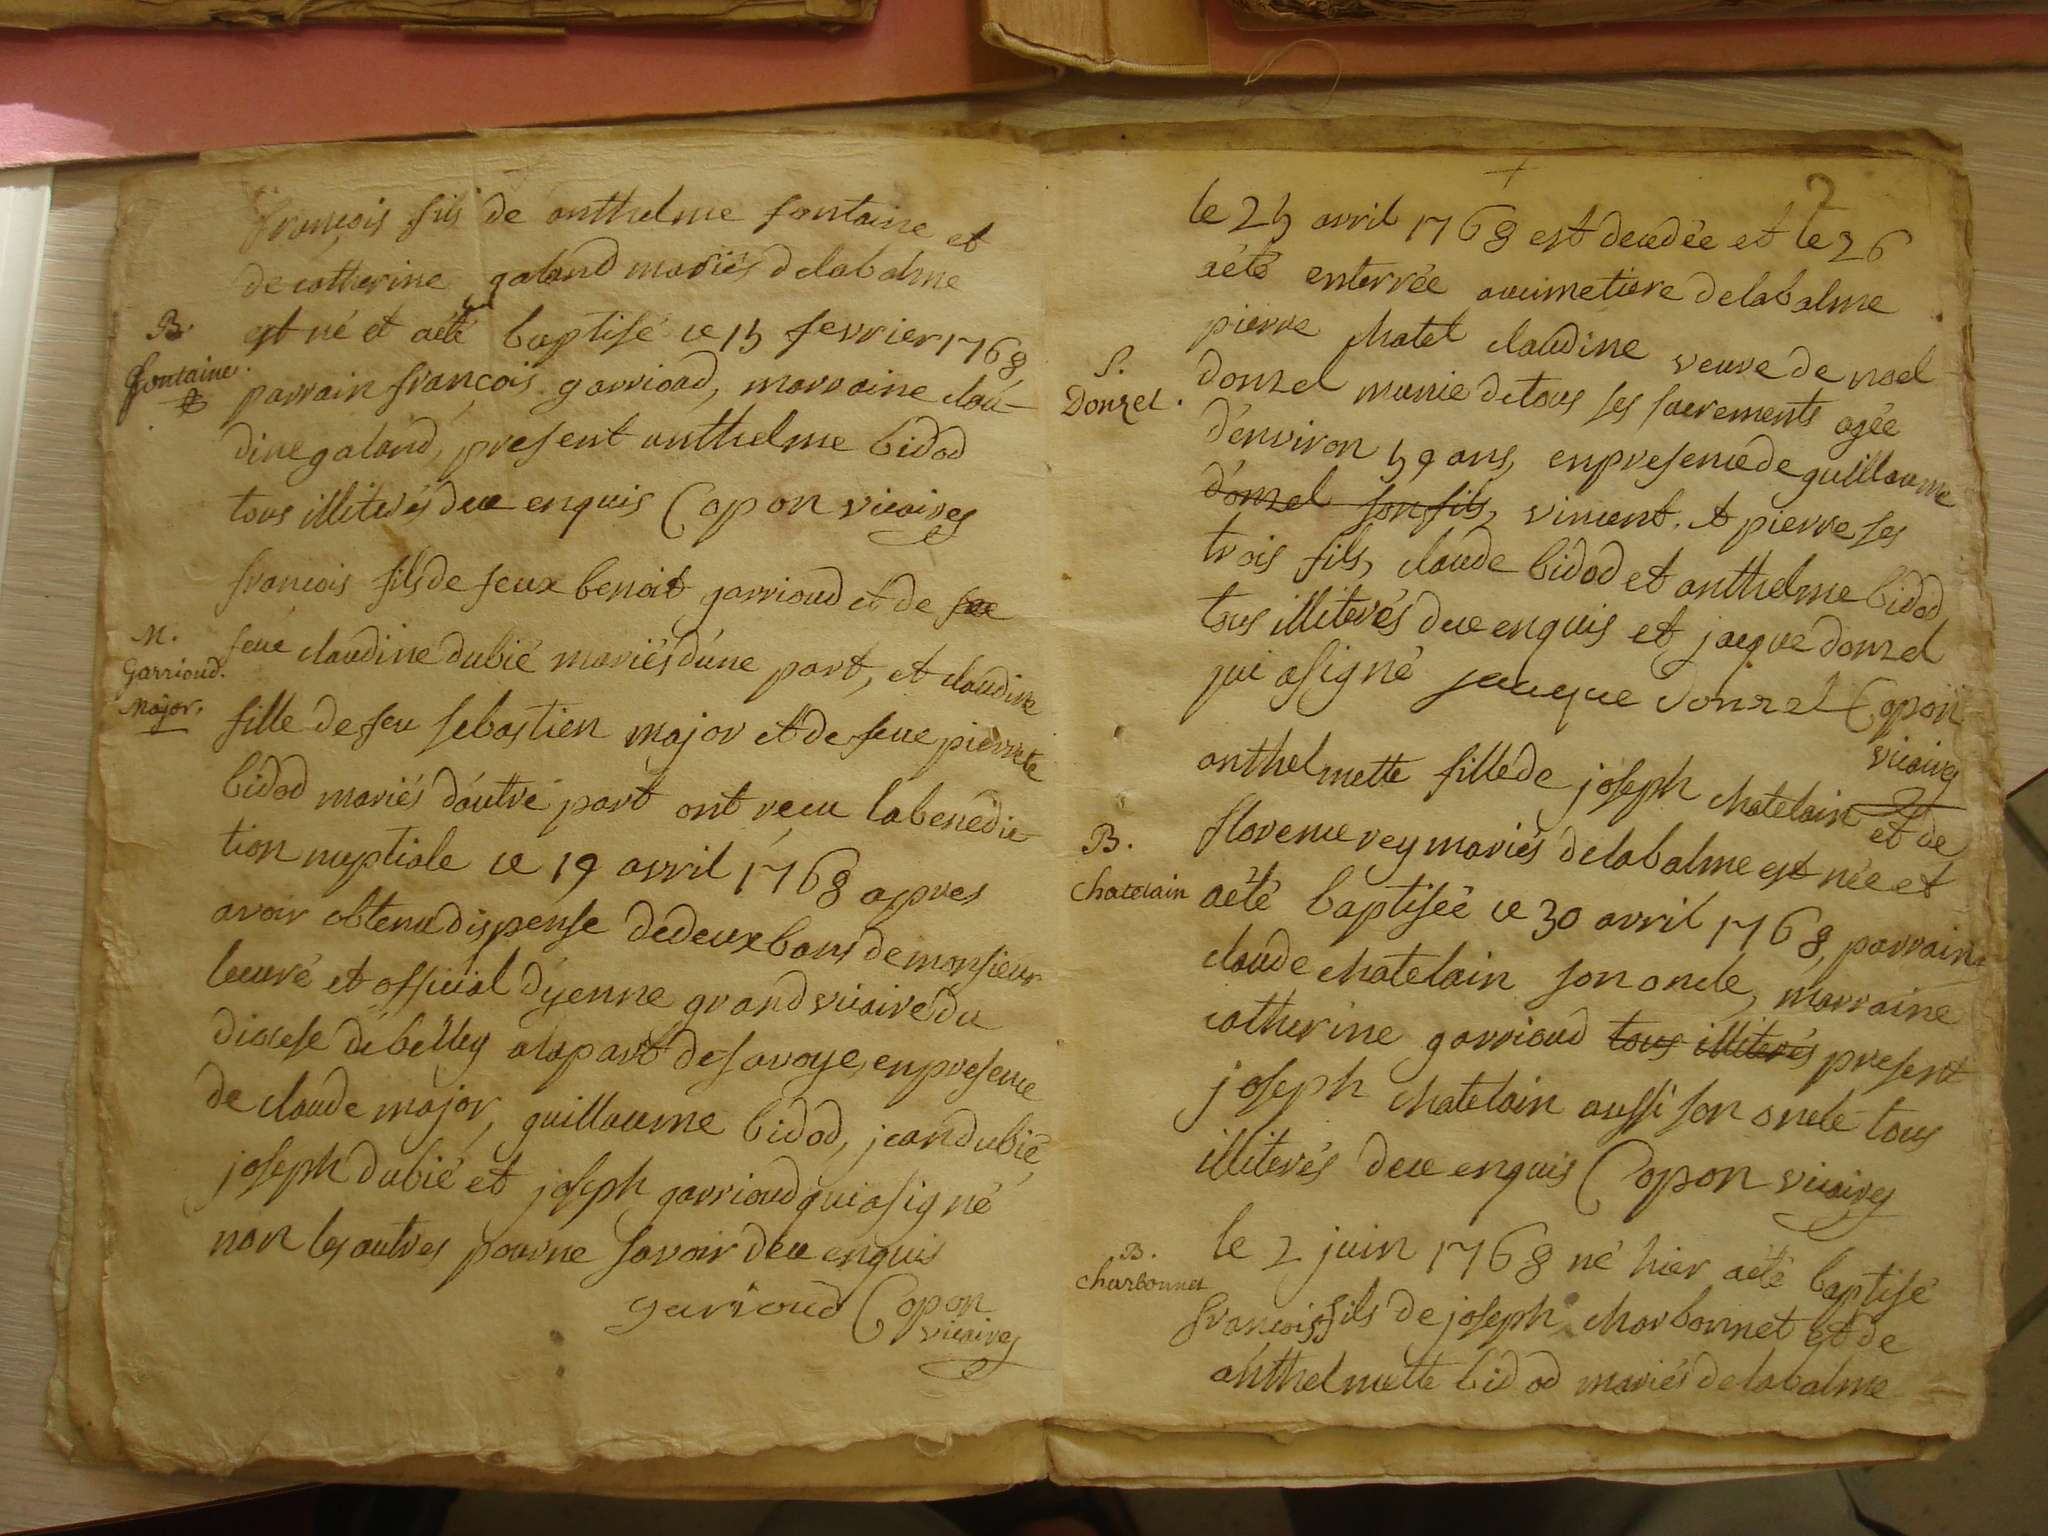 françois fils de anthelme fontaine et
de catherine galand mariés delabalme
B.
fontaine.
est né et aété baptisé ce 15 fevrier 1768
parrain françois garrioud, marraine clau-
dine galand, present anthelme bidod
tous illiterés deue enquis Copon vicaires
françois fils de feux benoit garrioud et de feue
M.
Garrioud.
Major.
feue claudine dubié mariés d'úne part, et claudine
fille de feu sebastien major et de feue pierrete
bidod mariés d'áutre part ont recu labenedic-
tion nuptiale ce 19 avril 1768 apres
avoir obtenu dispense dedeux bans de monsieur
lecuré et official d'yenne grand vicaire du
diocese debelley alapart desavoye, enpresence
de claude major, guillaume bidod, jean dubié,
joseph dubié et joseph garrioud qui asigné
non les autres pourne savoir deue enquis
garioud Copon
vicaires
2
le 25 avril 1768 est decedée et le 26
aété enterrée aucimetiere delabalme
pierre chatel claudine veuve de noel
S.
Donzel.
donzel munie detous ses sacrements agée
d'énviron 59 ans, enpresence de guillaume
donzel son fils, vincent, et pierre ses
trois fils, claude bidod et anthelme bidod,
tous illiterés deue enquis et jacque donzel
qui asigné jacque donzel Copon
vicaires
anthelmette fille de joseph chatelain et de
B.
Chatelain
florence rey mariés delabalme est née et
aété baptisée ce 30 avril 1768, parrain
claude chatelain son oncle, marraine
catherine garrioud tous illiterés present
joseph chatelain aussi son oncle tous
illiterés deue enquis Copon vicaires
B.
Charbonnet
le 2 juin 1768 né hier aété baptisé
françois fils de joseph charbonnet et de
anthelmette bidod mariés delabalme